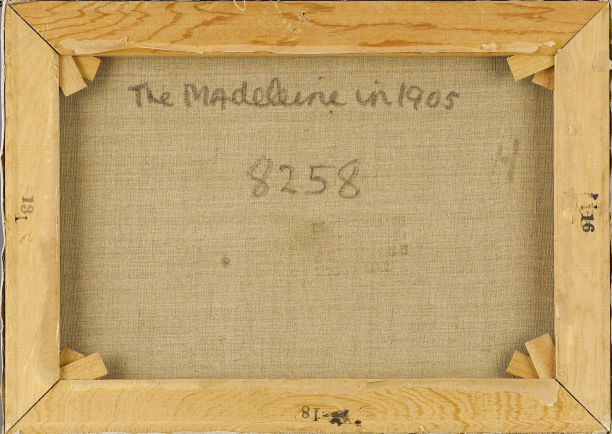 The Madeleine in 1905
8258
H
13
16
18